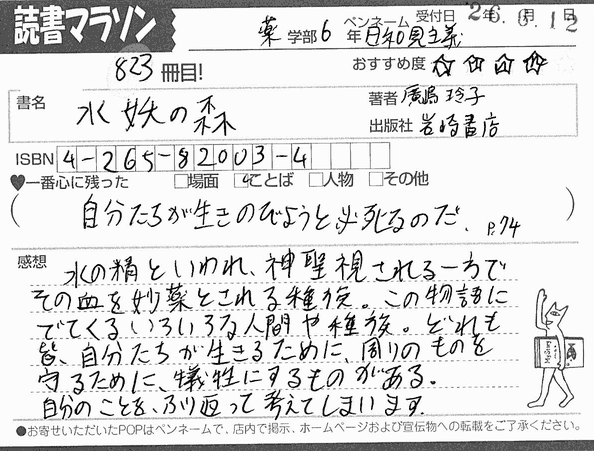 読書マラソン
薬 学部 6 年 ペンネーム 日和見主義 受付日 '26.3.12
年 月 日
823 冊目! おすすめ度 ☆☆☆☆
書名 水妖の森 著者 廣嶋玲子
出版社 岩崎書店
ISBN 4-265-82003-4
♥一番心に残った □場面 ☑ことば □人物 □その他
( 自分たちが生きのびようと必死なのだ、 P.74 )
感想 水の精といわれ、神聖視される一方で
その血を妙薬とされる種族。この物語に
でてくるいろいろな人間や種族。どれも
皆、自分たちが生きるために、周りのものを
守るために、犠牲にするものがある。
自分のことを、ふり返って考えてしまいます。
●お寄せいただいたPOPはペンネームで、店内で掲示、ホームページおよび宣伝物への転載をご了承ください。